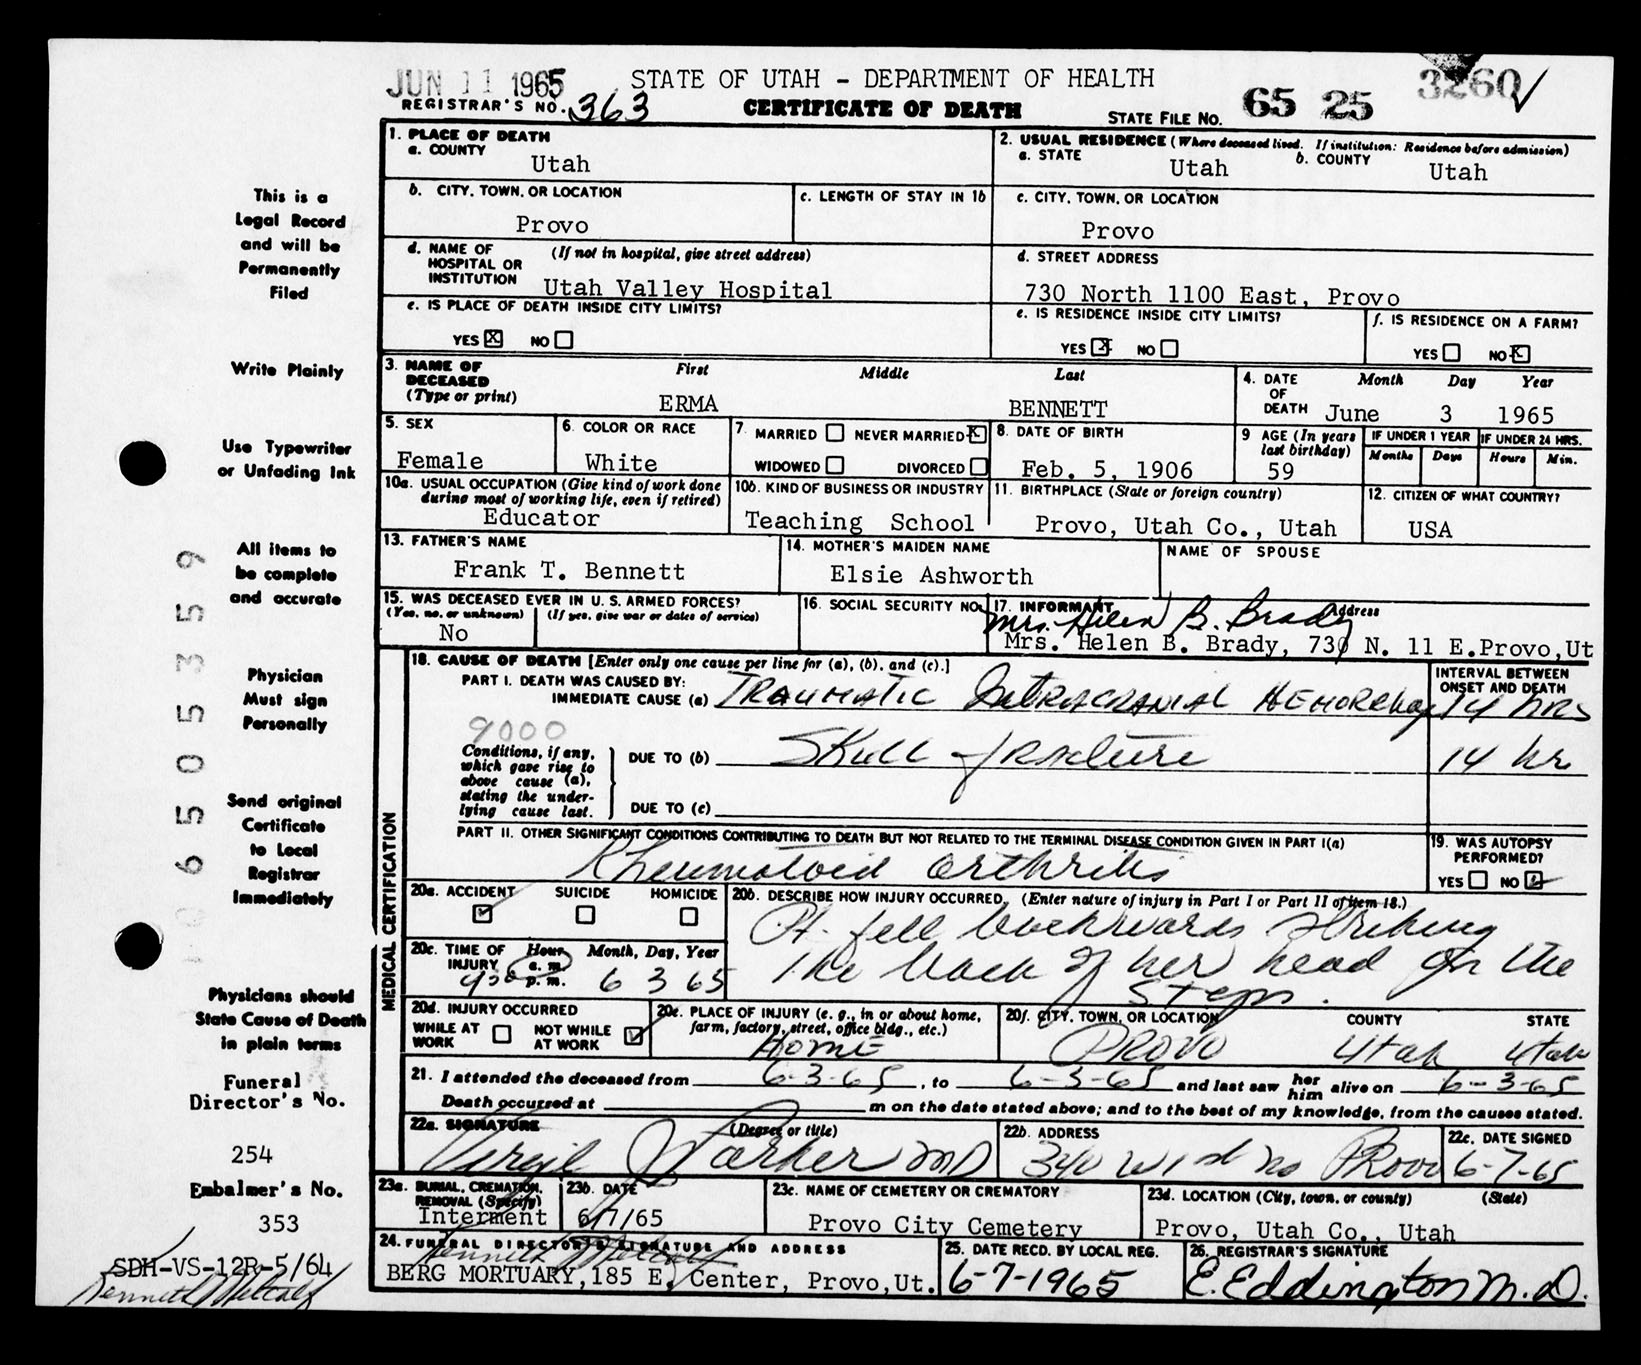 JUN 11 1965 STATE OF UTAH - DEPARTMENT OF HEALTH 3260 ✓
REGISTRAR'S NO. 363 CERTIFICATE OF DEATH STATE FILE NO. 65 25
1. PLACE OF DEATH
a. COUNTY
Utah
2. USUAL RESIDENCE (Where deceased lived. If institution: Residence before admission)
a. STATE Utah b. COUNTY Utah
b. CITY, TOWN, OR LOCATION
Provo
c. LENGTH OF STAY IN 1b
c. CITY, TOWN, OR LOCATION
Provo
d. NAME OF HOSPITAL OR INSTITUTION (If not in hospital, give street address)
Utah Valley Hospital
d. STREET ADDRESS
730 North 1100 East, Provo
e. IS PLACE OF DEATH INSIDE CITY LIMITS?
YES X NO
e. IS RESIDENCE INSIDE CITY LIMITS?
YES X NO
f. IS RESIDENCE ON A FARM?
YES NO X
3. NAME OF DECEASED (Type or print) First Middle Last
ERMA BENNETT
4. DATE OF DEATH Month Day Year
June 3 1965
5. SEX
Female
6. COLOR OR RACE
White
7. MARRIED NEVER MARRIED X
WIDOWED DIVORCED
8. DATE OF BIRTH
Feb. 5, 1906
9 AGE (In years last birthday)
59
IF UNDER 1 YEAR IF UNDER 24 HRS.
Months Days Hours Min.
10a. USUAL OCCUPATION (Give kind of work done during most of working life, even if retired)
Educator
10b. KIND OF BUSINESS OR INDUSTRY
Teaching School
11. BIRTHPLACE (State or foreign country)
Provo, Utah Co., Utah
12. CITIZEN OF WHAT COUNTRY?
USA
13. FATHER'S NAME
Frank T. Bennett
14. MOTHER'S MAIDEN NAME
Elsie Ashworth
NAME OF SPOUSE
15. WAS DECEASED EVER IN U. S. ARMED FORCES?
(Yes, no, or unknown) (If yes, give war or dates of service)
No
16. SOCIAL SECURITY NO.
17. INFORMANT Address
Mrs. Helen B. Brady
Mrs. Helen B. Brady, 730 N. 11 E.Provo,Ut
MEDICAL CERTIFICATION
18. CAUSE OF DEATH [Enter only one cause per line for (a), (b), and (c).]
INTERVAL BETWEEN ONSET AND DEATH
PART I. DEATH WAS CAUSED BY:
IMMEDIATE CAUSE (a) Traumatic Intracranial Hemorrhag 14 hrs
9000
Conditions, if any, which gave rise to above cause (a), stating the underlying cause last.
DUE TO (b) Skull fracture 14 hr
DUE TO (c)
PART II. OTHER SIGNIFICANT CONDITIONS CONTRIBUTING TO DEATH BUT NOT RELATED TO THE TERMINAL DISEASE CONDITION GIVEN IN PART I(a)
Rheumatoid arthritis
19. WAS AUTOPSY PERFORMED?
YES NO
20a. ACCIDENT SUICIDE HOMICIDE
20b. DESCRIBE HOW INJURY OCCURRED. (Enter nature of injury in Part I or Part II of item 18.)
Pt. fell backwards striking
the back of her head on the
steps.
20c. TIME OF INJURY Hour a. m. p. m. Month, Day, Year
6 3 65
20d. INJURY OCCURRED
WHILE AT WORK NOT WHILE AT WORK
20e. PLACE OF INJURY (e. g., in or about home, farm, factory, street, office bldg., etc.)
Home
20f. CITY, TOWN, OR LOCATION COUNTY STATE
Provo Utah Utah
21. I attended the deceased from 6-3-65, to 6-3-65 and last saw her him alive on 6-3-65
Death occurred at m on the date stated above; and to the best of my knowledge, from the causes stated.
22a. SIGNATURE (Degree or title)
Virgil J Parker MD
22b. ADDRESS
Provo
22c. DATE SIGNED
6-7-65
23a. BURIAL, CREMATION, REMOVAL (Specify)
Interment
23b. DATE
6/7/65
23c. NAME OF CEMETERY OR CREMATORY
Provo City Cemetery
23d. LOCATION (City, town, or county) (State)
Provo, Utah Co., Utah
24. FUNERAL DIRECTOR'S SIGNATURE AND ADDRESS
Kenneth J Metcalf
BERG MORTUARY,185 E. Center, Provo,Ut.
25. DATE RECD. BY LOCAL REG.
6-7-1965
26. REGISTRAR'S SIGNATURE
E. Eddington M. D.
This is a
Legal Record
and will be
Permanently
Filed
Write Plainly
Use Typewriter
or Unfading Ink
All items to
be complete
and accurate
Physician
Must sign
Personally
Send original
Certificate
to Local
Registrar
Immediately
Physicians should
State Cause of Death
in plain terms
Funeral
Director's No.
254
Embalmer's No.
353
SDH-VS-12R-5/64
Kenneth J Metcalf
65053559